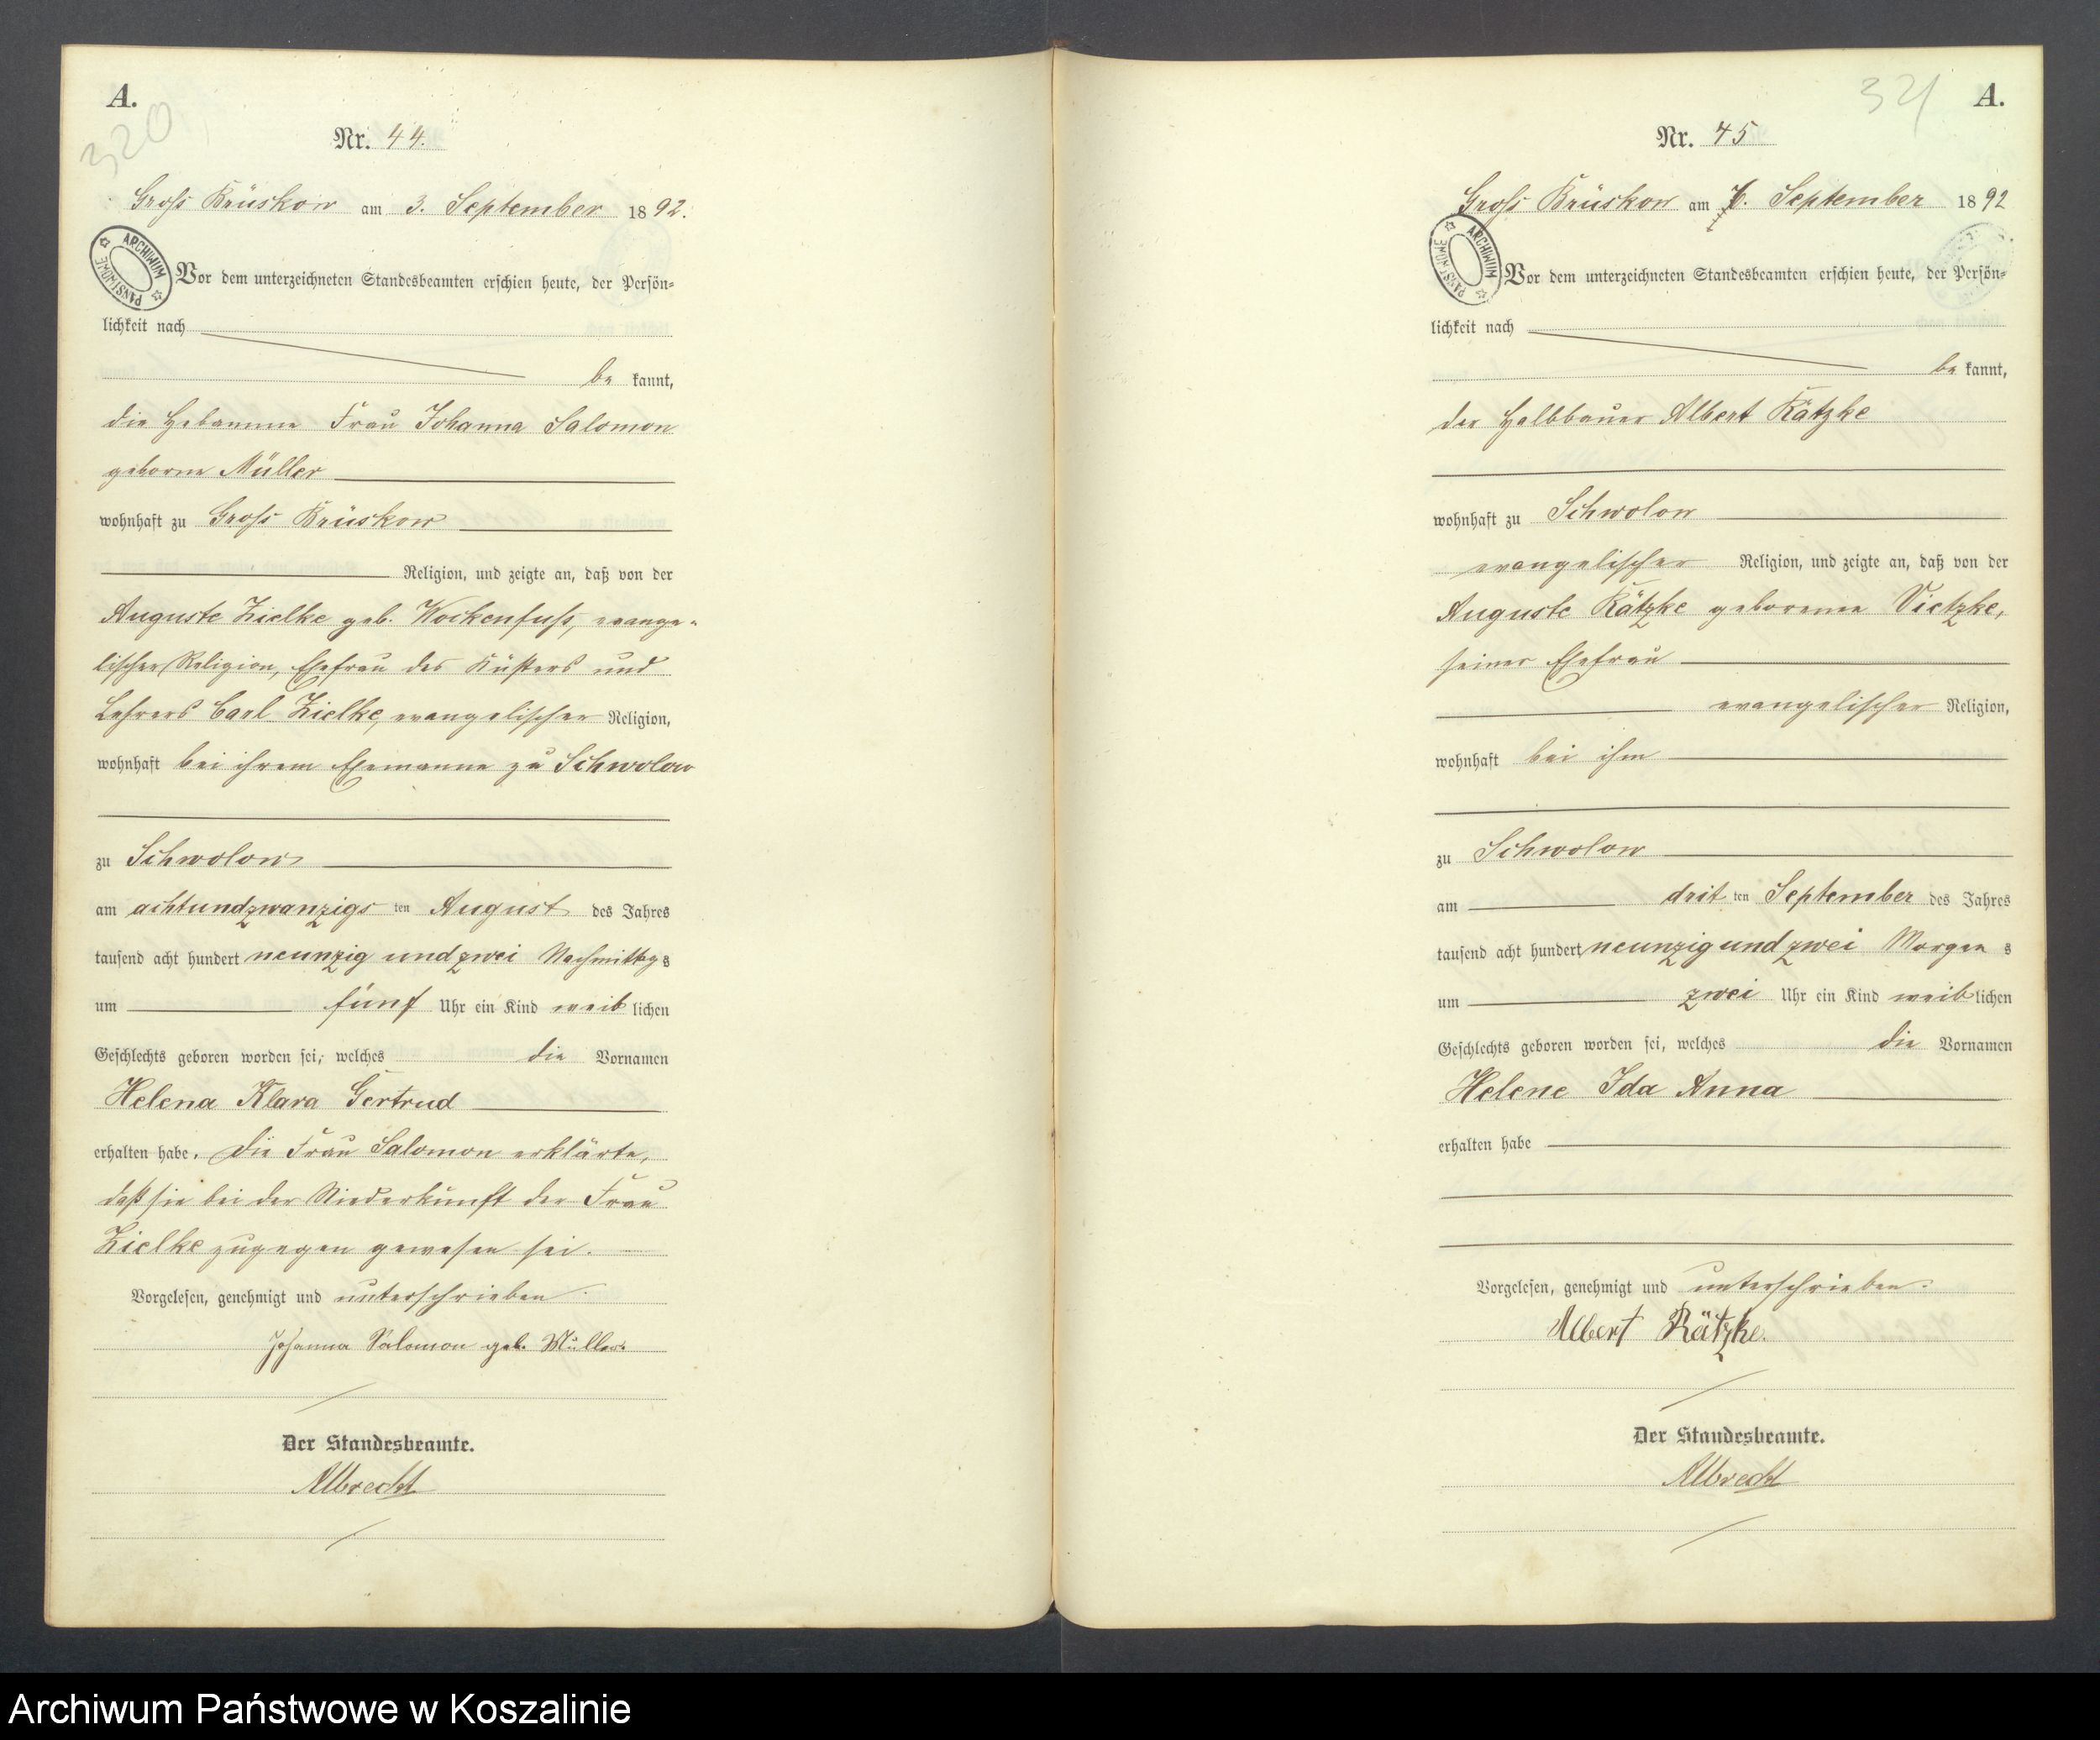 A.
320
Nr. 44.
Groß Brüskow am 3. September 1892.
ARCHIWUM PAŃSTWOWE
Vor dem unterzeichneten Standesbeamten erschien heute, der Persön=
lichkeit nach
be kannt,
die Hebamme Frau Johanna Salomon
geborne Müller
wohnhaft zu Groß Brüskow
Religion, und zeigte an, daß von der
Auguste Zielke geb. Wockenfuß, evange=
lischer Religion, Ehefrau des Küsters und
Lehrers Carl Zielke, evangelischer Religion,
wohnhaft bei ihrem Ehemanne zu Schwolow
zu Schwolow
am achtundzwanzigs ten August des Jahres
tausend acht hundert neunzig und zwei Nachmittags
um fünf Uhr ein Kind weib lichen
Geschlechts geboren worden sei, welches die Vornamen
Helena Klara Gertrud
erhalten habe. Die Frau Salomon erklärte,
daß sie bei der Niederkunft der Frau
Zielke zugegen gewesen sei.
Vorgelesen, genehmigt und unterschrieben.
Johanna Salomon geb. Müller
Der Standesbeamte.
Albrecht
321
A.
Nr. 45
Groß Brüskow am 6. September 1892
ARCHIWUM PAŃSTWOWE
Vor dem unterzeichneten Standesbeamten erschien heute, der Persön=
lichkeit nach
be kannt,
der Halbbauer Albert Rätzke
wohnhaft zu Schwolow
evangelischer Religion, und zeigte an, daß von der
Auguste Rätzke geborenen Vietzke,
seiner Ehefrau
evangelischer Religion,
wohnhaft bei ihm
zu Schwolow
am drit ten September des Jahres
tausend acht hundert neunzig und zwei Morgen s
um zwei Uhr ein Kind weib lichen
Geschlechts geboren worden sei, welches die Vornamen
Helene Ida Anna
erhalten habe
Vorgelesen, genehmigt und unterschrieben.
Albert Rätzke.
Der Standesbeamte.
Albrecht
Archiwum Państwowe w Koszalinie